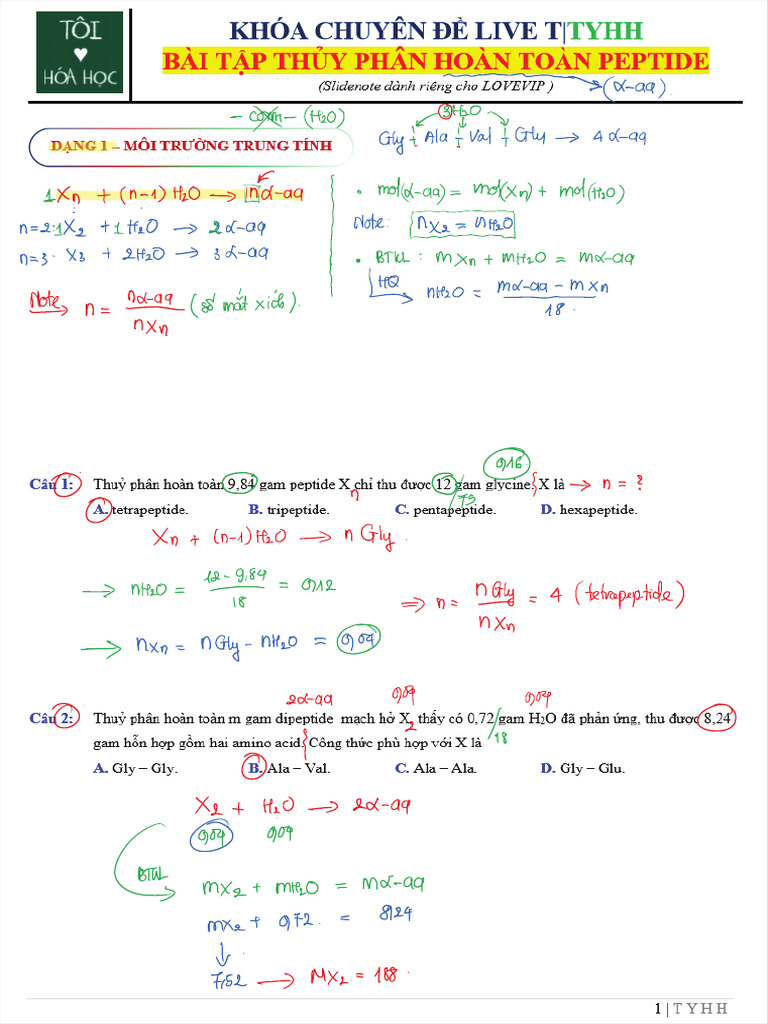 TÔI
♥
HÓA HỌC
KHÓA CHUYÊN ĐỀ LIVE T|TYHH
BÀI TẬP THỦY PHÂN HOÀN TOÀN PEPTIDE
(Slidenote dành riêng cho LOVEVIP )
(α-aa)
(H2O)
3H2O
Gly + Ala + Val + Gly → 4 α-aa
DẠNG 1 – MÔI TRƯỜNG TRUNG TÍNH
1Xn + (n-1) H2O → n α-aa
n=2: 1X2 + 1H2O → 2α-aa
n=3. X3 + 2H2O → 3α-aa
Note → n = nα-aa / nXn (số mắt xích).
• mol(α-aa) = mol(Xn) + mol(H2O)
Note: nX2 = nH2O
• BTKL : mXn + mH2O = mα-aa
HQ → nH2O = mα-aa - mXn / 18.
0,16
Câu 1: Thuỷ phân hoàn toàn 9,84 gam peptide Xn chỉ thu được 12/75 gam glycine. X là → n = ?
A. tetrapeptide. B. tripeptide. C. pentapeptide. D. hexapeptide.
Xn + (n-1) H2O → n Gly.
→ nH2O = 12-9,84 / 18 = 0,12
→ nXn = nGly - nH2O = 0,04
⇒ n = nGly / nXn = 4 (tetrapeptide)
2α-aa 0,04 0,04
Câu 2: Thuỷ phân hoàn toàn m gam dipeptide mạch hở X2 thấy có 0,72/18 gam H2O đã phản ứng, thu được 8,24
gam hỗn hợp gồm hai amino acid. Công thức phù hợp với X là
A. Gly – Gly. B. Ala – Val. C. Ala – Ala. D. Gly – Glu.
X2 + H2O → 2α-aa
0,04 0,04
BTKL
mX2 + mH2O = mα-aa
mX2 + 0,72 = 8,24
↓
7,52 → MX2 = 188.
1 | T Y H H